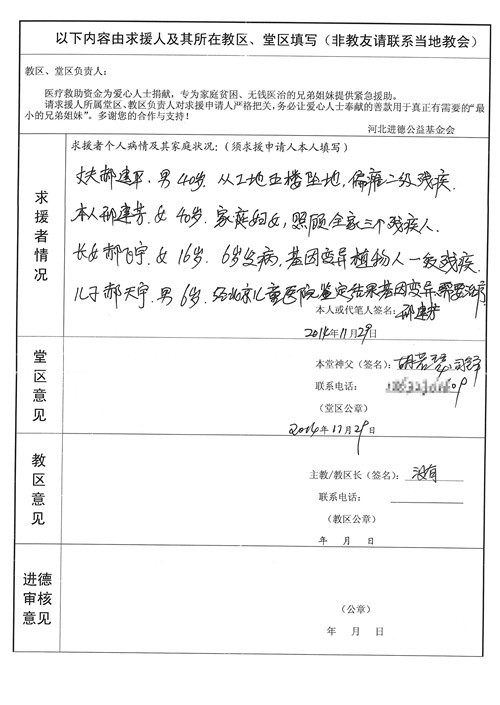 以下内容由求援人及其所在教区、堂区填写（非教友请联系当地教会）
教区、堂区负责人：
医疗救助资金为爱心人士捐献，专为家庭贫困、无钱医治的兄弟姐妹提供紧急援助。
请求援人所属堂区、教区负责人对求援申请人严格把关，务必让爱心人士奉献的善款用于真正有需要的“最
小的兄弟姐妹”。多谢您的合作与支持！
河北进德公益基金会
求援者情况
求援者个人病情及其家庭状况：（须求援申请人本人填写）
丈夫郝建 男40岁．从工地五楼坠地，偏瘫二级残疾．
本人 建芳．女40岁．家庭妇女，照顾全家三个残疾人．
长女郝飞宇．女16岁．6岁发病，基因变异植物人一级残疾．
儿子郝天宇．男6岁．经北京儿童医院鉴定结果基因变异 需要治疗
本人或代笔人签名： 建芳
2014年11月29日
堂区意见
本堂神父（签名）：胡
联系电话：
（堂区公章）
2014年11月29日
教区意见
主教/教区长（签名）：没有
联系电话：
（教区公章）
年 月 日
进德审核意见
（公章）
年 月 日